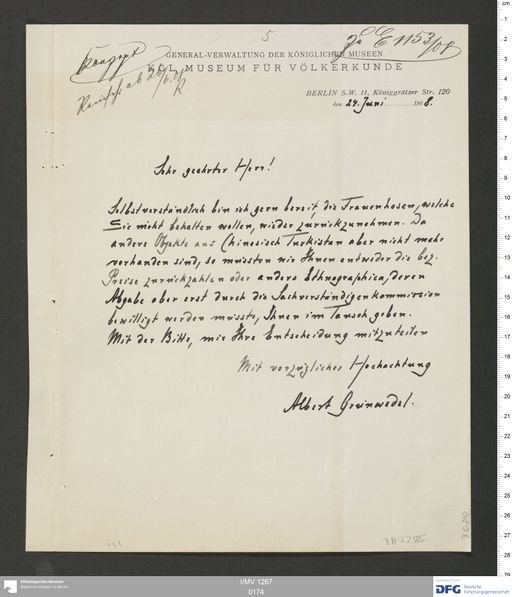 5
Konzept
zu E 1153/08
GENERAL-VERWALTUNG DER KÖNIGLICHEN MUSEEN
KGL. MUSEUM FÜR VÖLKERKUNDE
Reinschr. ab 26/6.08
R.
BERLIN S.W. 11, Königgrätzer Str. 120
den 24. Juni 1908.
Sehr geehrter Herr!
Selbstverständlich bin ich gern bereit, die Frauenhosen, welche
Sie nicht behalten wollen, wieder zurückzunehmen. Da
andere Objekte aus Chinesisch Turkistan aber nicht mehr
vorhanden sind, so müssten wir Ihnen entweder die bez.
Preise zurückzahlen oder andere Ethnographica, deren
Abgabe aber erst durch die Sachverständigenkommission
bewilligt werden müsste, Ihnen im Tausch geben.
Mit der Bitte, mir Ihre Entscheidung mitzuteilen
Mit vorzüglicher Hochachtung
Albert Grünwedel.
I/MV 1267
0174
Ethnologisches Museum
Staatliche Museen zu Berlin
DFG Deutsche
Forschungsgemeinschaft